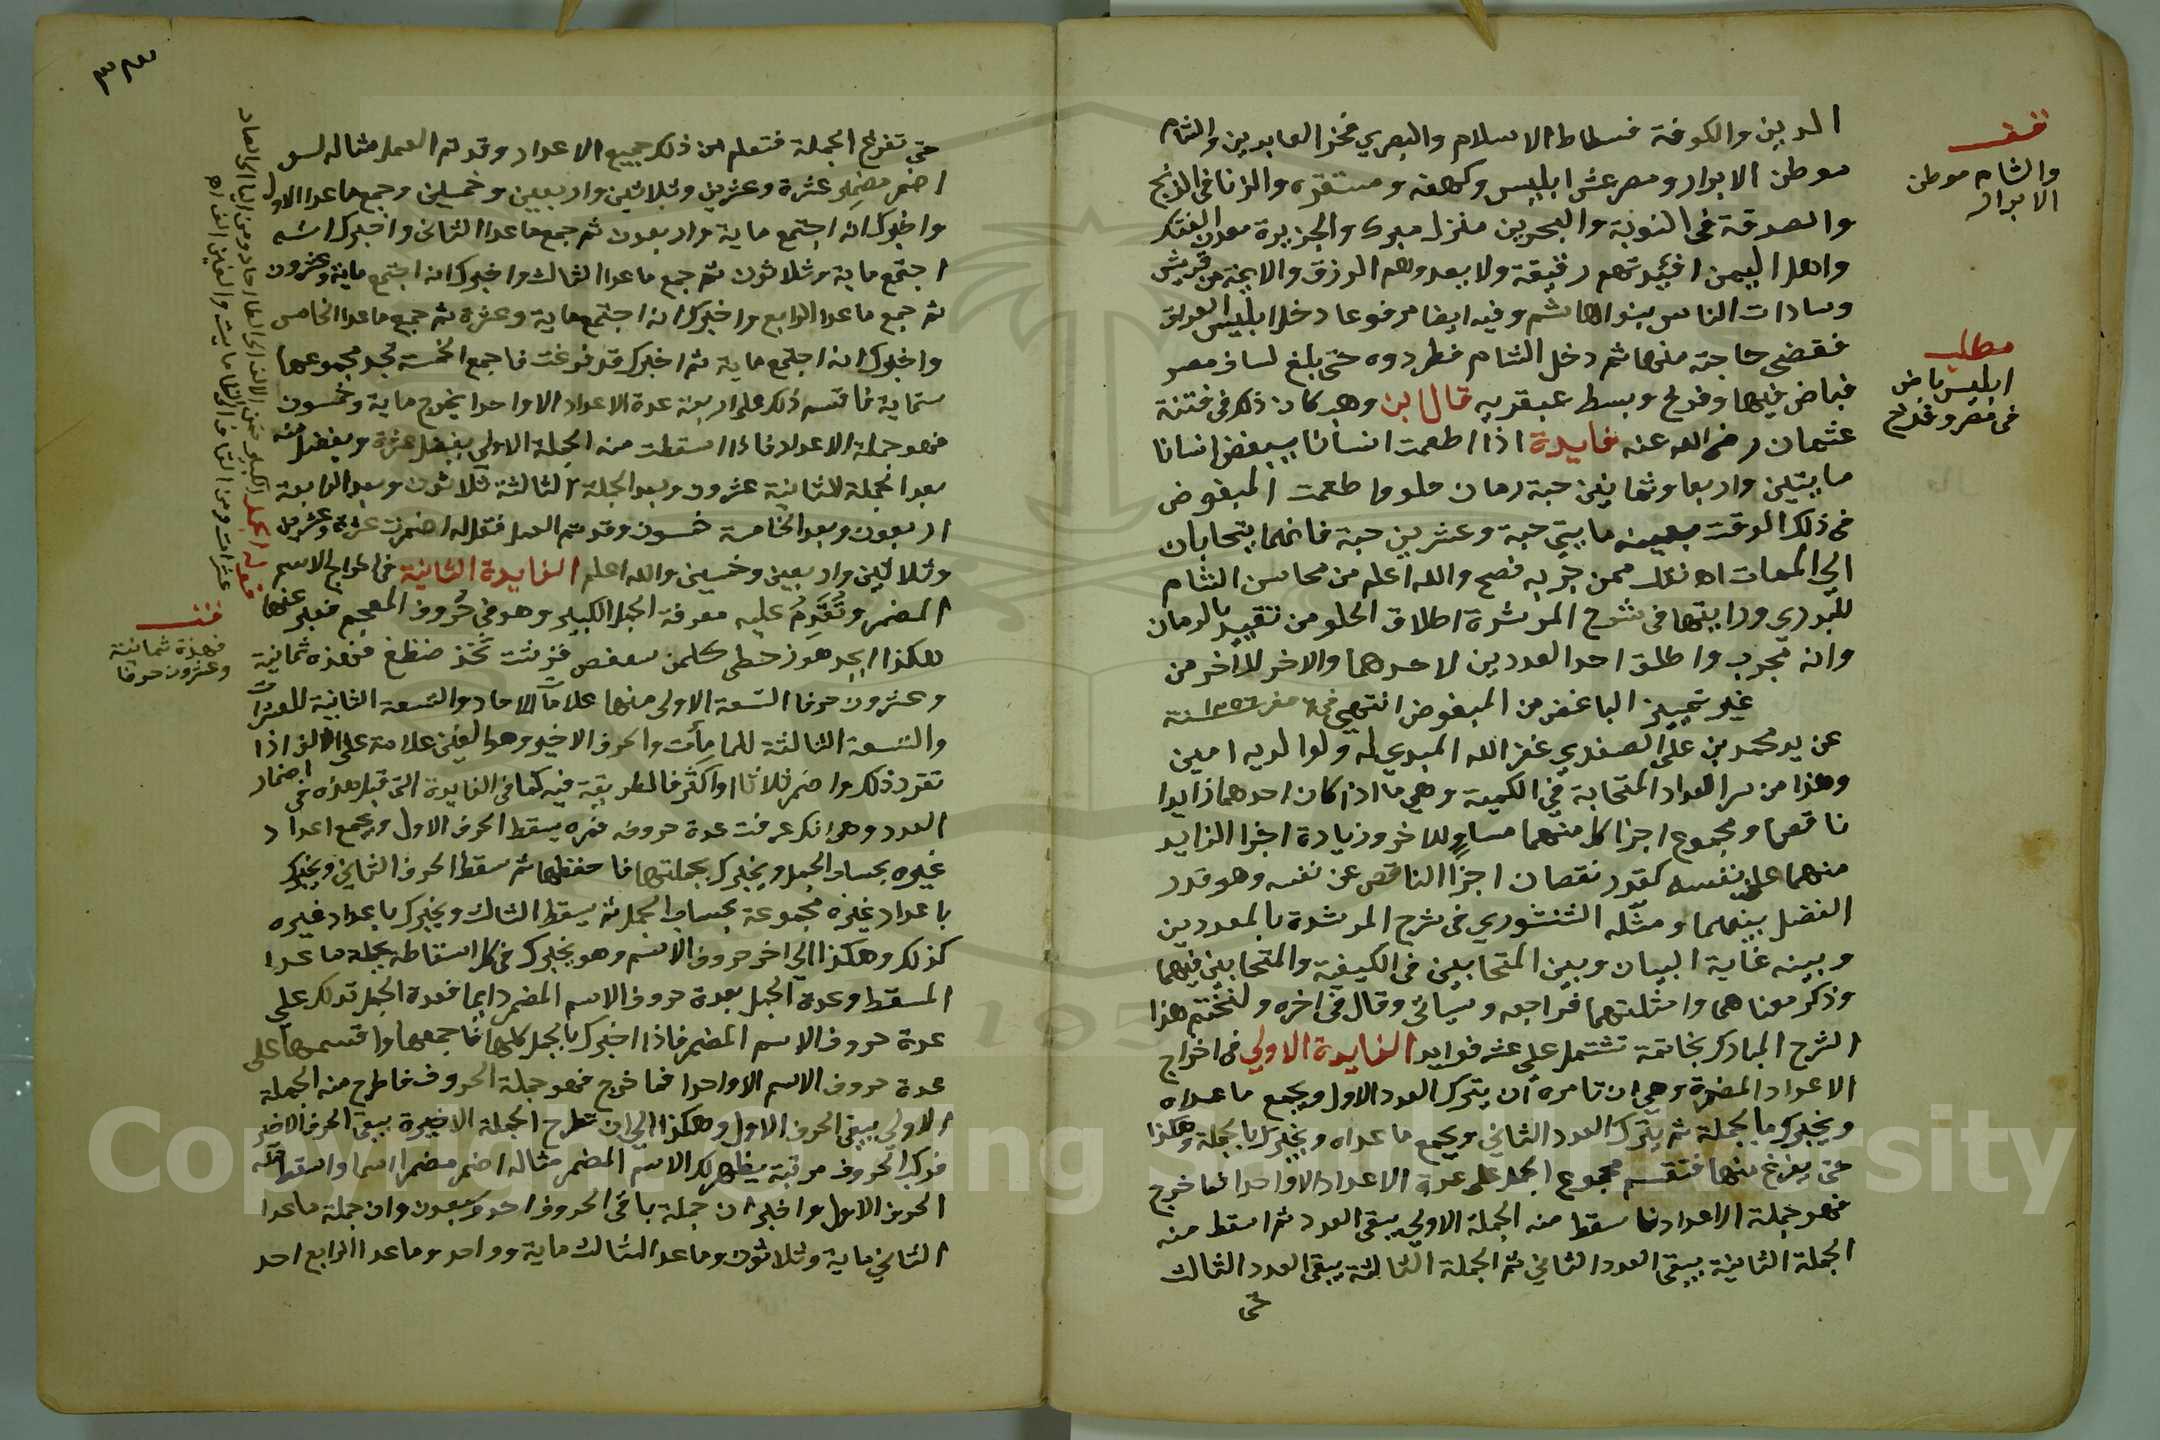 الدين والكوفة فسطاط الاسلام والبصري فخر العابدين والشام
موطن الابدال ومصر عش ابليس وكهفه ومستقره والزنا في الزنج
والصدقة في النوبة والبحرين منزل مبرك والجزيرة معدن الفتك
واهل اليمن افئدتهم رقيقة ولا يعدوهم الرزق والايمة من قريش
وسادات الناس بنو هاشم وفيه ايضا مرفوعا دخل ابليس العراق
فقضى حاجته منها ثم دخل الشام فطردوه حتى بلغ لساف مصر
فباض فيها وفرخ وبسط عبقريه قال ابن وهب كان ذلك في فتنة
عثمان رضي الله عنه فايدة اذا اطعمت انسانا يبغض انسانا
مايتين واربعا وثمانين حبة رمان حلو واطعمت المبغوض
في ذلك الوقت بعينه مايتي حبة وعشرين حبة فانهما يتحابان
الى الممات اه نقل ممن جربه فصح والله اعلم من محاسن الشام
للبدري ورايتها في شرح المرشدة اطلاق الحلو من تقييد بالرمان
وانه مجرب واطلق احد العددين لاحدهما والاخر للاخر من
غير تمييز الباغض من المبغوض انتهى في صفر سنة
عن يد محمد بن علي الصفدي غفر الله المبدي له ولوالديه امين
وهذا من سر العداد المتحابة في الكمية وهي ما اذا كان احدهما زايدا
ناقصا ومجموع اجزا كل منهما مساو للاخر وزيادة اجزا الزايد
منهما على نفسه كقدر نقصان اجزا الناقص عن نفسه وهو قدر
الفضل بينهما ومثله الشنشوري في شرح المرشدة بالعددين
وبينه غاية البيان وبين المتحابين في الكيفية والمتحابين فيهما
وذكر معناهما وامثلتهما فراجعه وسياتي وقال في اخره ولنختم هذا
الشرح المبارك بخاتمة تشتمل على عشر فوايد الفايدة الاولى في اخراج
الاعداد المضمرة وهي ان تامره ان يترك العدد الاول ويجمع ما عداه
ويخبرك بالجملة ثم يترك العدد الثاني ويجمع ما عداه ويخبرك بالجملة وهكذا
حتى يفرغ منها فتقسم مجموع الجمل على عدة الاعداد الا واحدا فما خرج
فهو جملة الاعداد فاسقط منه الجملة الاولى يبقى العدد ثم اسقط منه
الجملة الثانية يبقى العدد الثاني ثم الجملة الثالثة يبقى العدد الثالث
حتى
قف
والشام موطن
الابدال
مطلب
ابليس باض
في مصر وفرخ
٣٣
حتى تفرغ الجملة فتعلم من ذلك جميع الاعداد وقد تم العمل مثاله لو
اضمر مضمر عشرة وعشرين وثلاثين واربعين وخمسين وجمع ما عدا الاول
واخبرك انه اجتمع ماية واربعون ثم جمع ما عدا الثاني واخبرك انه
اجتمع ماية وثلاثون ثم جمع ما عدا الثالث واخبرك انه اجتمع ماية وعشرون
ثم جمع ما عدا الرابع واخبرك انه اجتمع ماية وعشرة ثم جمع ما عدا الخامس
واخبرك انه اجتمع ماية ثم اخبرك قد فرغت فاجمع الخمسة تجد مجموعها
ستماية فاقسم ذلك على اربعة عدة الاعداد الا واحدا يخرج ماية وخمسون
فهو جملة الاعداد فاذا اسقطت منه الجملة الاولى يفضل عشرة ويفضل منه
بعد الجملة الثانية عشرون وبعد الجملة الثالثة ثلاثون وبعد الرابعة
اربعون وبعد الخامسة خمسون وقد تم العمل فقل له اضمرت عشرة وعشرين
وثلاثين واربعين وخمسين والله اعلم الفايدة الثانية في اخراج الاسم
المضمر وتقدم عليه معرفة الجمل الكبير وهو في حروف المعجم فعبر عنها
هكذا ابجد هوز حطي كلمن سعفص قرشت ثخذ ضظغ فهذه ثمانية
وعشرون حرفا التسعة الاولى منها علامات الاحاد والتسعة الثانية للعشرات
والتسعة الثالثة للمات والحرف الاخير وهو الغين علامة على الالف اذا
تقرر ذلك واضمر ثلاثا او اكثر فالطريقة فيه كما في الفايدة التي قبل هذه في اضمار
العدد وهي انك عرفت عدة حروفه فمره يسقط الحرف الاول ويجمع اعداد
غيره بحساب الجمل ويخبرك بجملتها فاحفظها ثم يسقط الحرف الثاني ويخبرك
باعداد غيره مجموعة بحساب الجمل ثم يسقط الثالث ويخبرك باعداد غيره
كذلك وهكذا الى اخر حروف الاسم وهو يخبرك في كل اسقاطه بجملة ما عدا
المسقط وعدة الجمل بعدة حروف الاسم المضمر دايما فعدة الجمل تدلك على
عدة حروف الاسم المضمر فاذا اخبرك بالجمل كلها فاجمعها واقسمها على
عدة حروف الاسم الا واحدا فما خرج فهو جملة الحروف فاطرح منه الجملة
الاولى يبقى الحرف الاول وهكذا الى ان تطرح الجملة الاخيرة يبقى الحرف الاخير
فركب الحروف مرتبة يظهر لك الاسم المضمر مثاله اضمر مضمر اسما واسقط منه
الحرف الاول واخبر ان جملة باقي الحروف احد وسبعون وان جملة ما عدا
الثاني ماية وثلاثون وما عدا الثالث ماية وواحد وما عدا الرابع احد
قف
فهذه ثمانية
وعشرون حرفا
Copyright © King Saud University